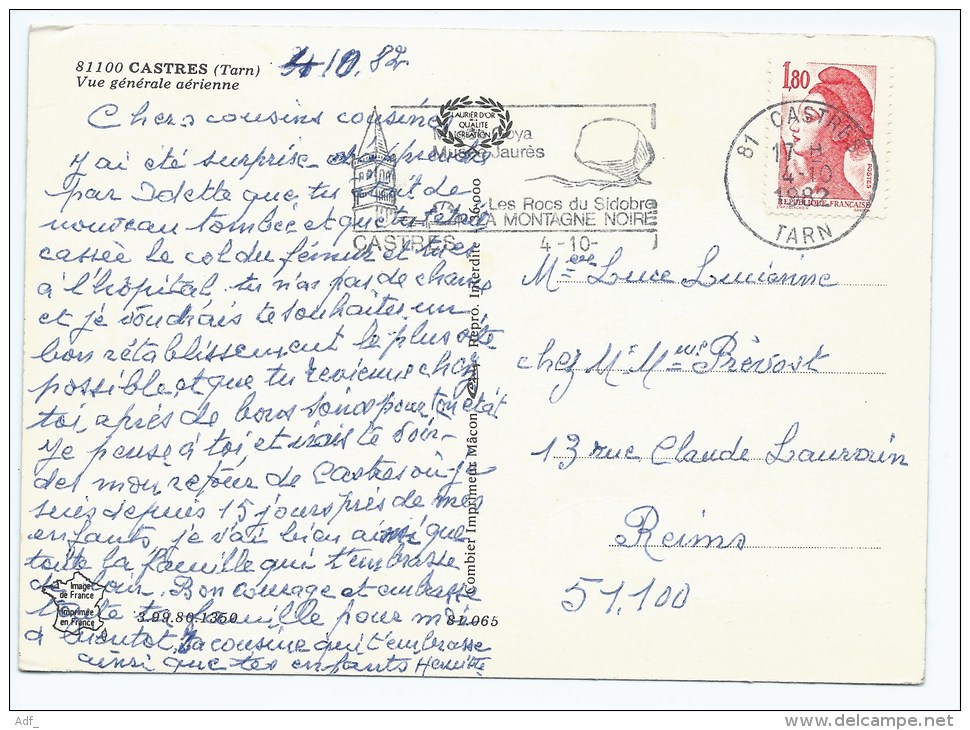 81100 CASTRES (Tarn)
Vue générale aérienne
4 10. 82
Chers cousins cousines
J'ai été surprise
par Odette que tu
nouveau tombée et que tu t'étais
cassée le col du fémur et
à l'hôpital, tu n'as pas de chance
et je voudrais te souhaiter un
bon rétablissement le plus vite
possible, et que tu revienne chez
toi, après de bons soins pour ton état
Je pense à toi et irais te voir
dès mon retour de Castres où je
suis depuis 15 jours près de mes
enfants, je vais bien ainsi que
toute la famille qui t'embrasse
de loin. Bon courage et embrasse
toute ta famille pour moi
à bientôt, ta cousine qui t'embrasse
ainsi que tes enfants Henriette
LAURIER D'OR
DE LA
QUALITÉ
CRÉATION
Musée Goya
Musée Jaurès
Les Rocs du Sidobre
LA MONTAGNE NOIRE
CASTRES
4-10-
81 CASTRES
17 H
4-10
1982
TARN
1,80
POSTES
REPUBLIQUE FRANÇAISE
Combier Imprimeur Mâcon
Repro. Interdite
Mme Luce Lucienne
chez Mr Mme Prévost
13 rue Claude Lauvain
Reims
51.100
Image
de France
Imprimée
en France
3.99.80.1350
81.065
Adf_
delcampe.net